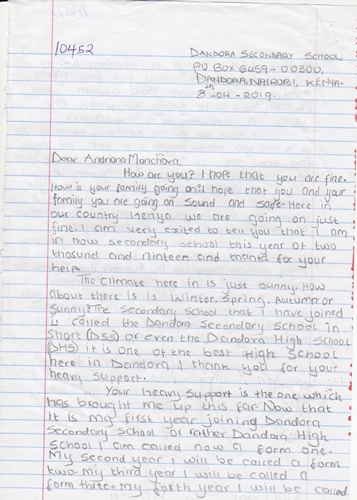 10452
DANDORA SECONDARY SCHOOL,
PO BOX 6459-00300,
DANDORA, NAIROBI, KENYA.
8th-04-2019.
Dear Andriana Manchora,
How are you? I hope that you are fine.
How is your family going on? I hope that you and your
family you are going on sound and safe. Here in
our country Kenya we are going on just
fine. I am very exited to tell you that I am
in now secondary school this year of two
thosund and ninteen and thanks for your
help.
The climate here in is just sunny. How
about there is is Winter, Spring, Autumn or
Sunny? The secondary school that I have joined
is called the Dandora Secondary School in
short (DSS) or even the Dandora High School
(DHS) it is one of the best High School
here in Dandora. I thank you for your
heavy support.
Your heavy support is the one which
has brought me up this far. Now that
it is my first year joining Dandora
Secondary School or rather Dandora High
School I am called now a form one.
My second year I will be called a form
two. My third year I will be called a
form three. My forth year I will be called